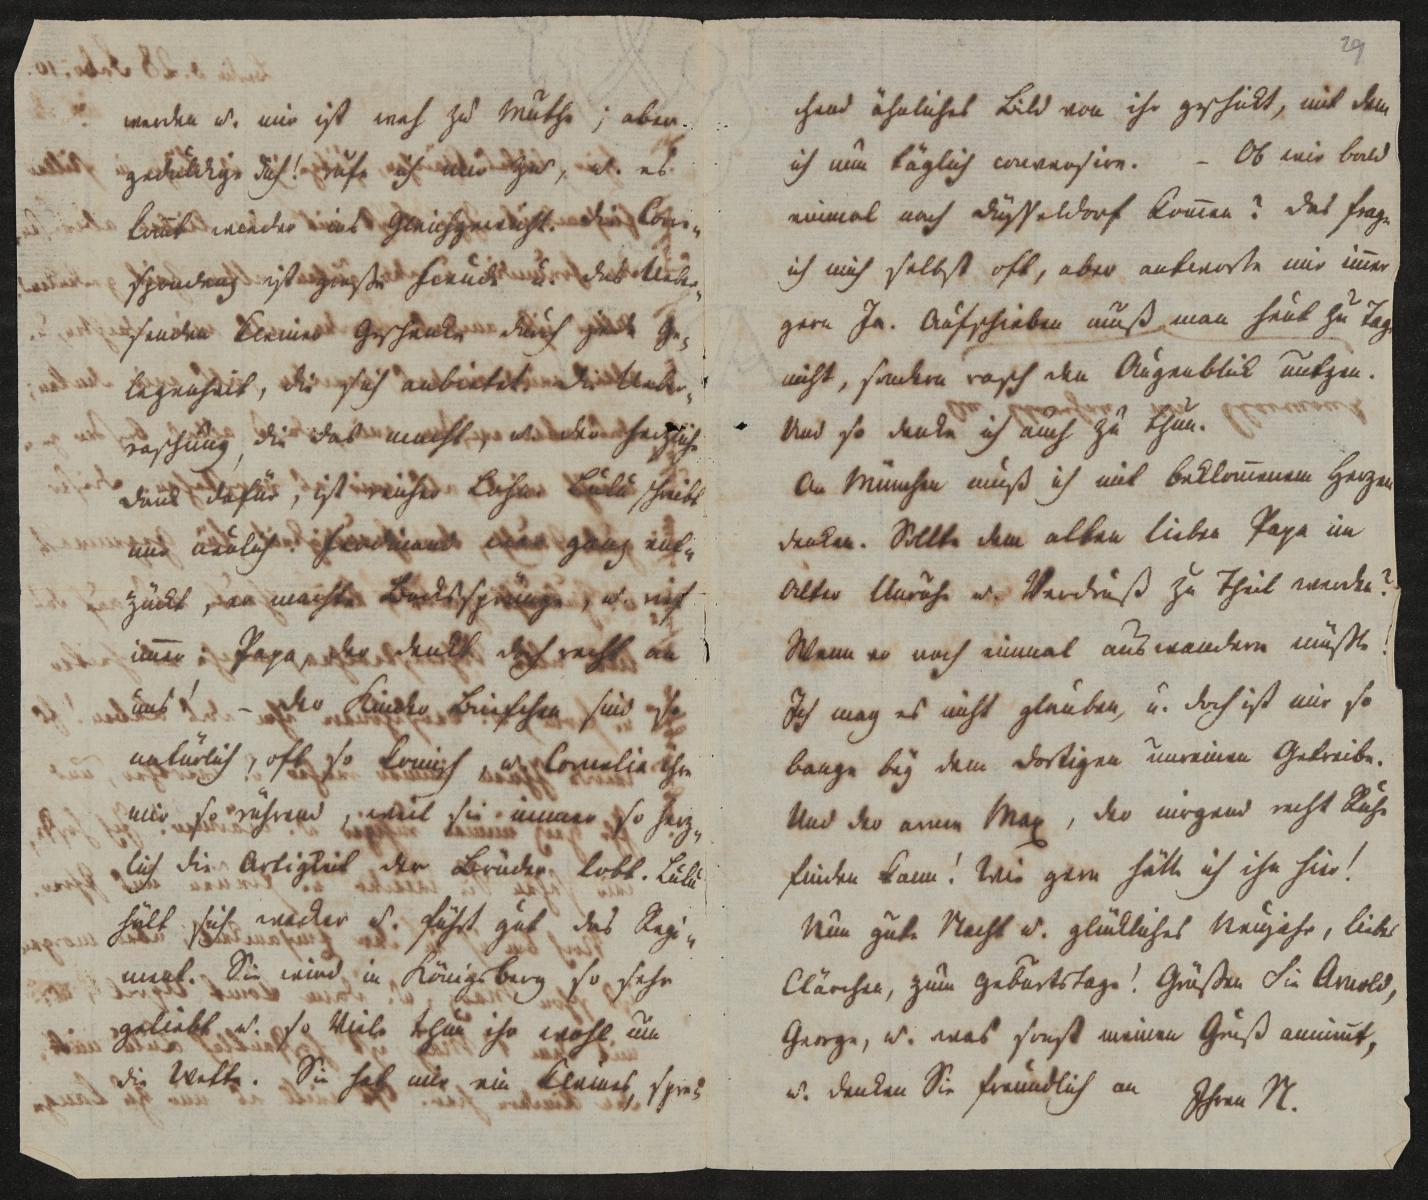 werden u. mir ist weh zu Muthe; aber
gedulde dich! rufe ich mir zu, u. es
kom̄t wieder ins Gleichgewicht. Die Corre-
spondenz ist große Freude u. das Ueber-
senden kleiner Geschenke durch jede Ge-
legenheit, die sich anbietet. Die Ueber-
raschung, die das macht, u. der herzliche
Dank dafür, ist reicher Lohn. Lulu schreibt
mir neulich: Ferdinand war ganz ent-
zückt, er machte Bockssprünge, u. rief
im̄er: Papa, der denkt doch recht an
uns! – Der Kinder Briefchen sind so
natürlich, oft so komisch, u. Cornelia ihre
mir so rührend, weil sie immer so herz-
lich die Artigkeit der Brüder lobt. Lulu
hält sich wacker u. führt gut das Regi-
ment. Sie wird in Königsberg so sehr
geliebt u. so Viele thun ihr wohl um
die Wette. Sie hat mir ein kleines, spre-
29
chend ähnliches Bild von ihr geschickt, mit dem
ich nun täglich conversire. – Ob wir bald
einmal nach Düsseldorf kom̄en? das frage
ich mich selbst oft, aber antworte mir im̄er
gern Ja. Aufschieben muß man heut zu Tage
nicht, sondern rasch den Augenblick nutzen.
Und so denke ich auch zu thun.
An München muß ich mit beklom̄enem Herzen
denken. Sollte dem alten lieben Papa im
Alter Unruhe u. Verdruß zu Theil werden?
Wenn er noch einmal auswandern müßte!
Ich mag es nicht glauben, u. doch ist mir so
bange bey dem dortigen unreinen Getreibe.
Und der arme Max, der nirgend recht Ruhe
finden kann! Wie gern hätte ich ihn hier!
Nun gute Nacht u. glückliches Neujahr, liebes
Clärchen, zum Geburtstage! Grüßen Sie Arnold,
George, u. was sonst meinen Gruß annim̄t,
u. denken Sie freundlich an Ihren N.